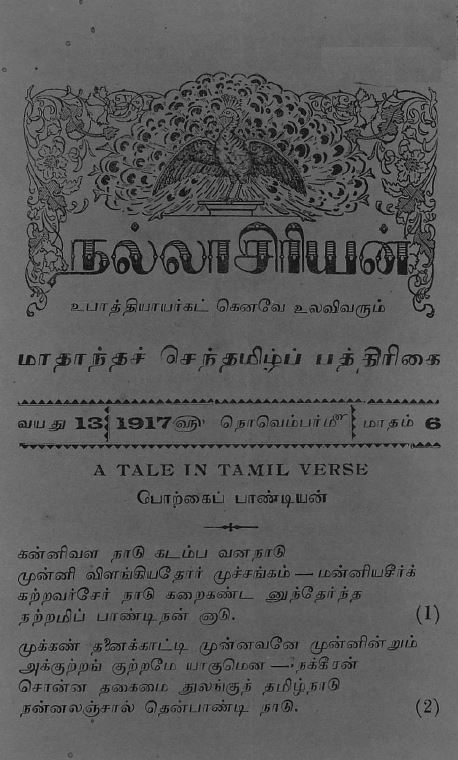 நல்லாசிரியன்
உபாத்தியாயர்கட் கெனவே உலவிவரும்
மாதாந்தச் செந்தமிழ்ப் பத்திரிகை
வயது 13 1917௵ நொவெம்பர்௴ மாதம் 6
A TALE IN TAMIL VERSE
பொற்கைப் பாண்டியன்
கன்னிவள நாடு கடம்ப வனநாடு
முன்னி விளங்கியதோர் முச்சங்கம் — மன்னியசீர்க்
கற்றவர்சேர் நாடு கறைகண்ட னுந்தேர்ந்த
நற்றமிப் பாண்டிநன் னாடு. (1)
முக்கண் தனைக்காட்டி முன்னவனே முன்னின்றும்
அக்குற்றங் குற்றமே யாகுமென — நக்கீரன்
சொன்ன தகைமை துலங்குந் தமிழ்நாடு
நன்னலஞ்சால் தென்பாண்டி நாடு. (2)